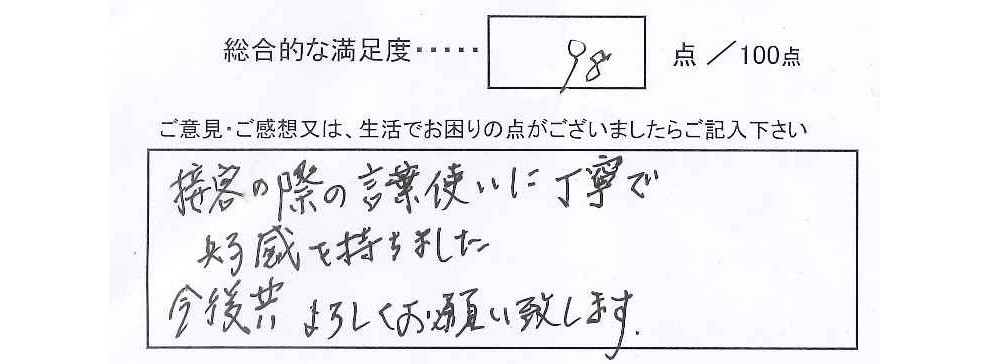 総合的な満足度・・・・・ 98 点 ／100点
ご意見・ご感想又は、生活でお困りの点がございましたらご記入下さい
接客の際の言葉使いに丁寧で
好感を持ちました
今後共よろしくお願い致します.